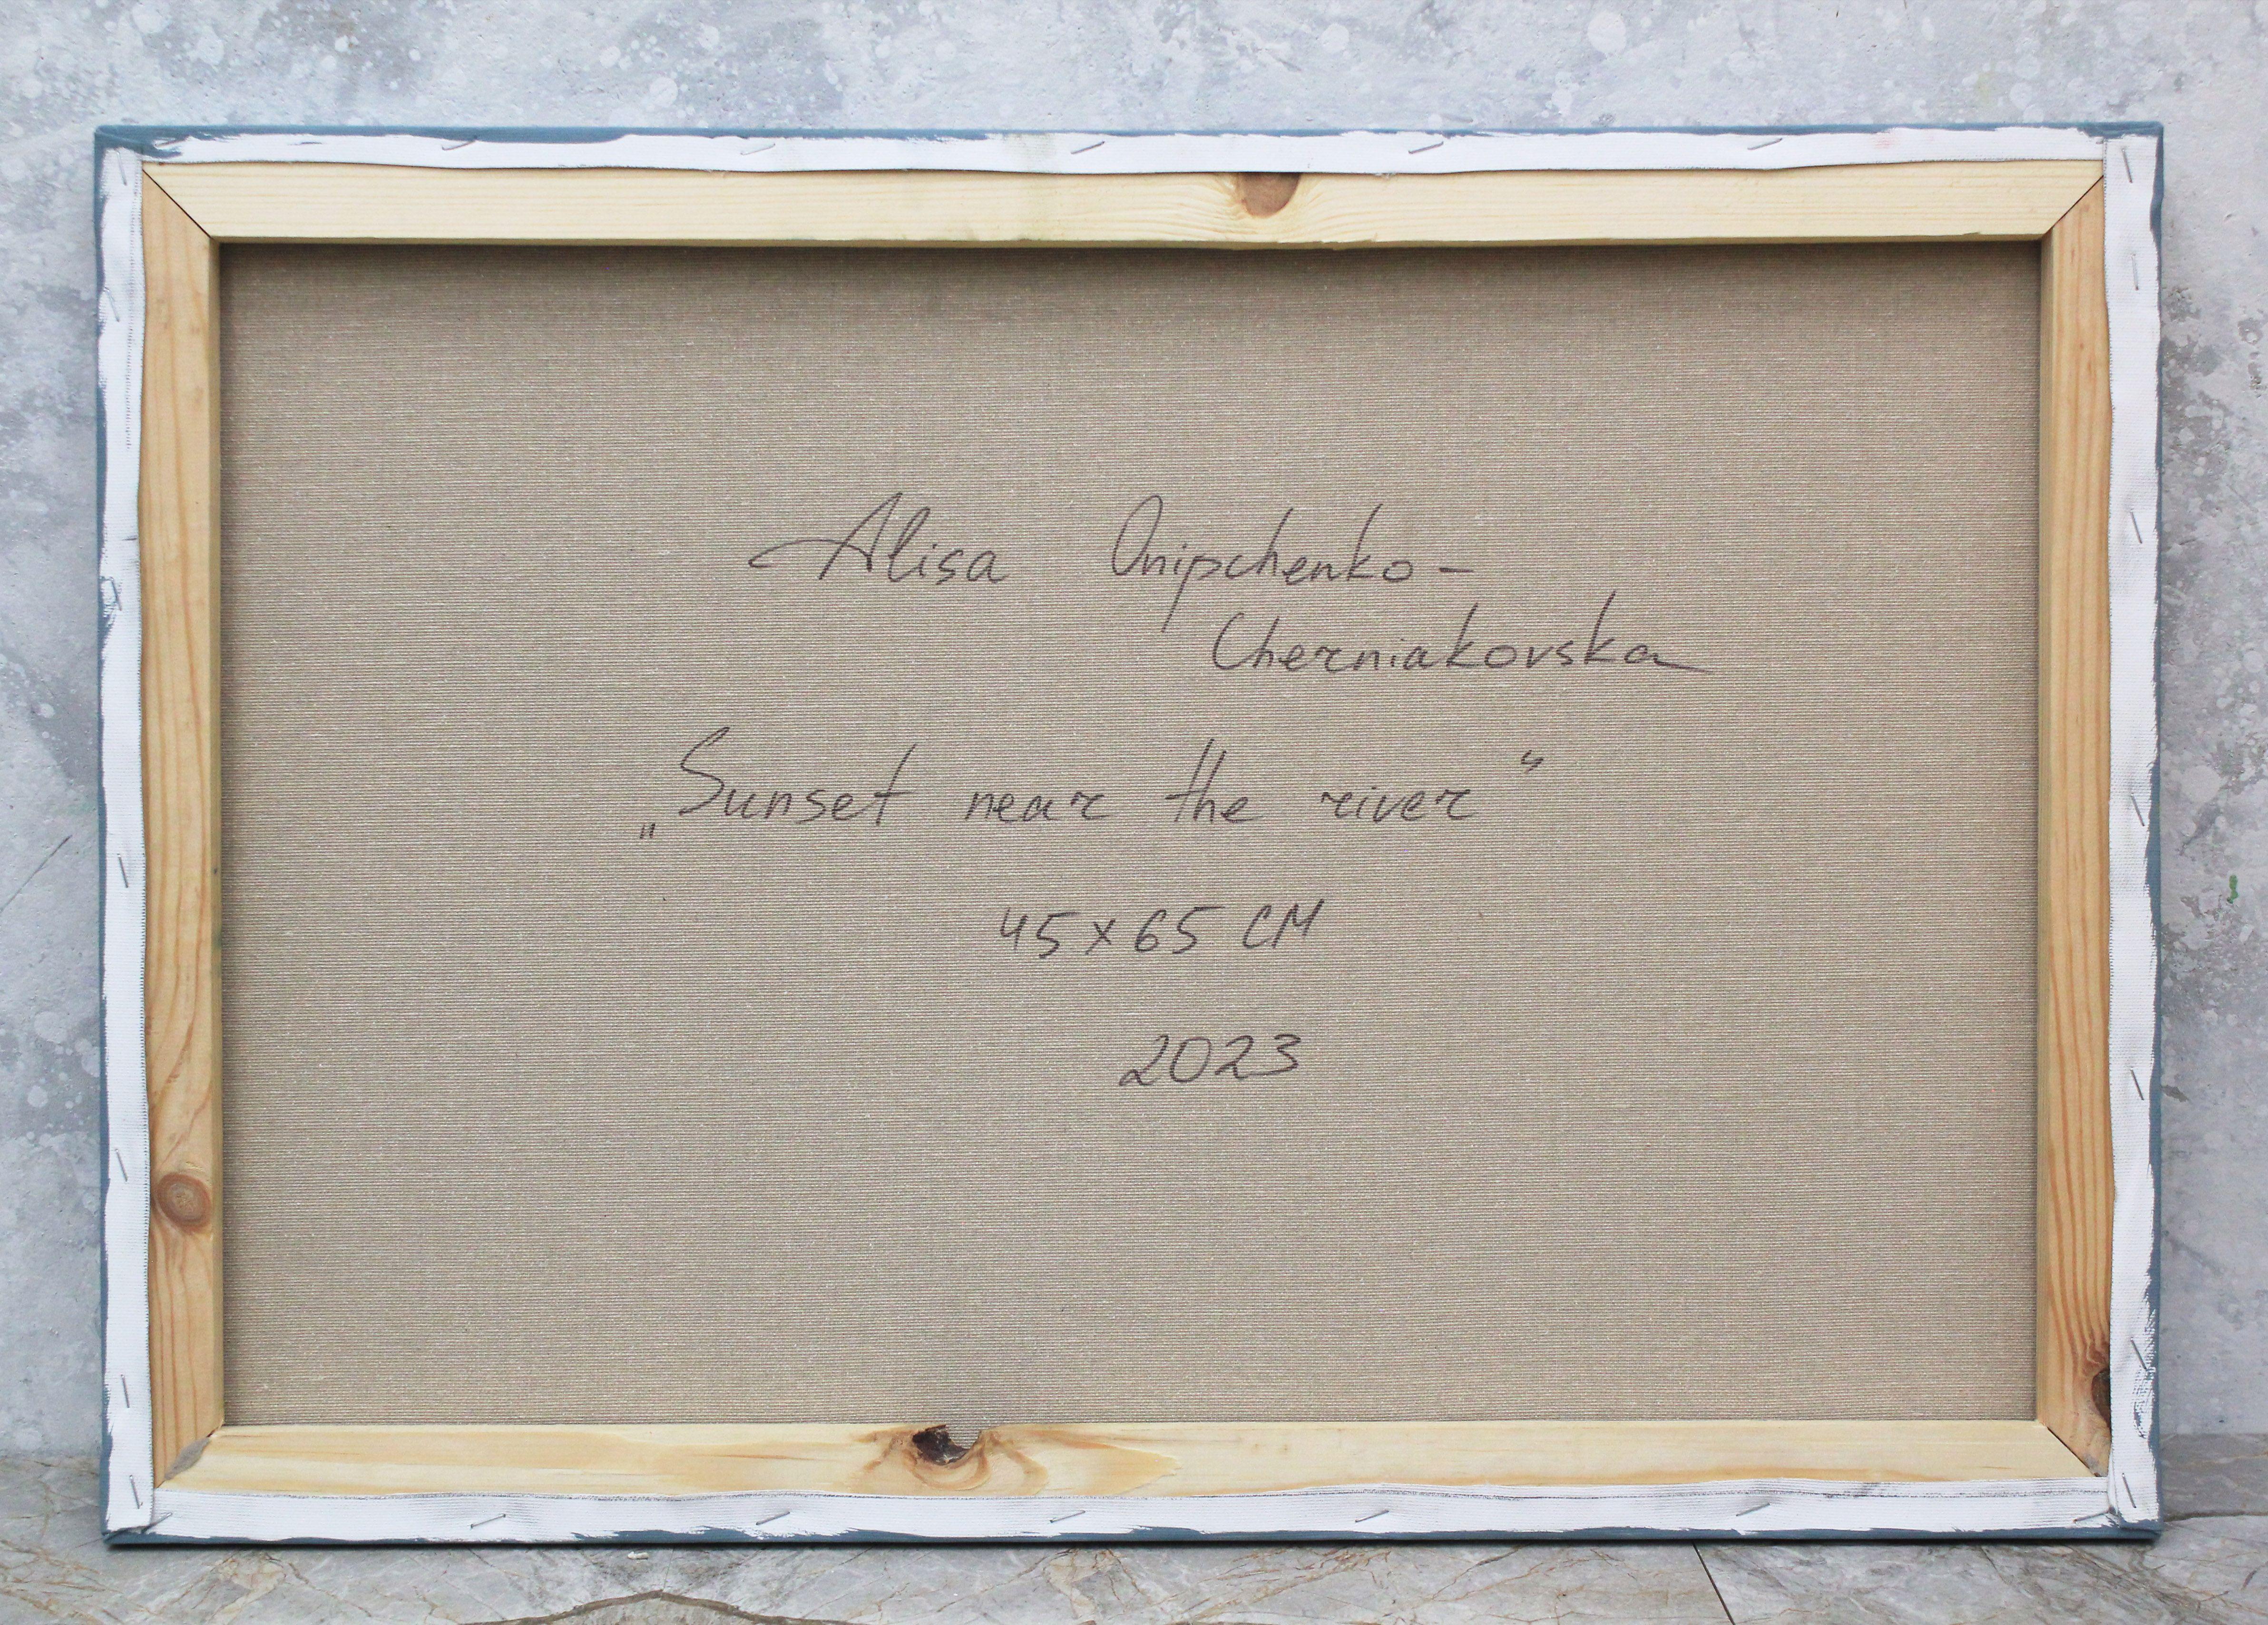 Alisa Onipchenko-
Cherniakovska
„Sunset near the river“
45x65 CM
2023